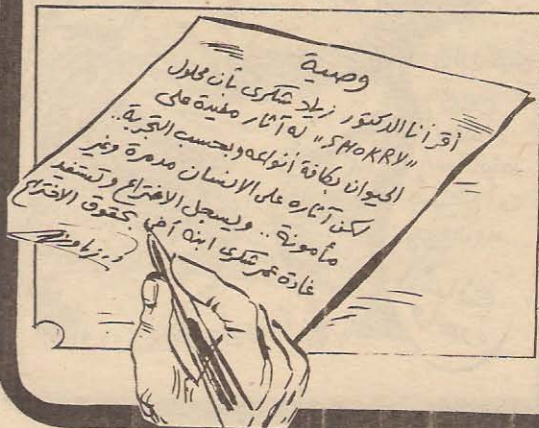 وصية
أقر أنا الدكتور زياد شكرى بأن محلول
"SHOKRY" له آثار مفيدة على
الحيوان بكافة أنواعه وبحسب التجربة..
لكن آثاره على الانسان مدمرة وغير
مأمونة.. ويسجل الاختراع وتستفيد
غادة عمر شكرى ابنة أخى بحقوق الاختراع
د. زياد